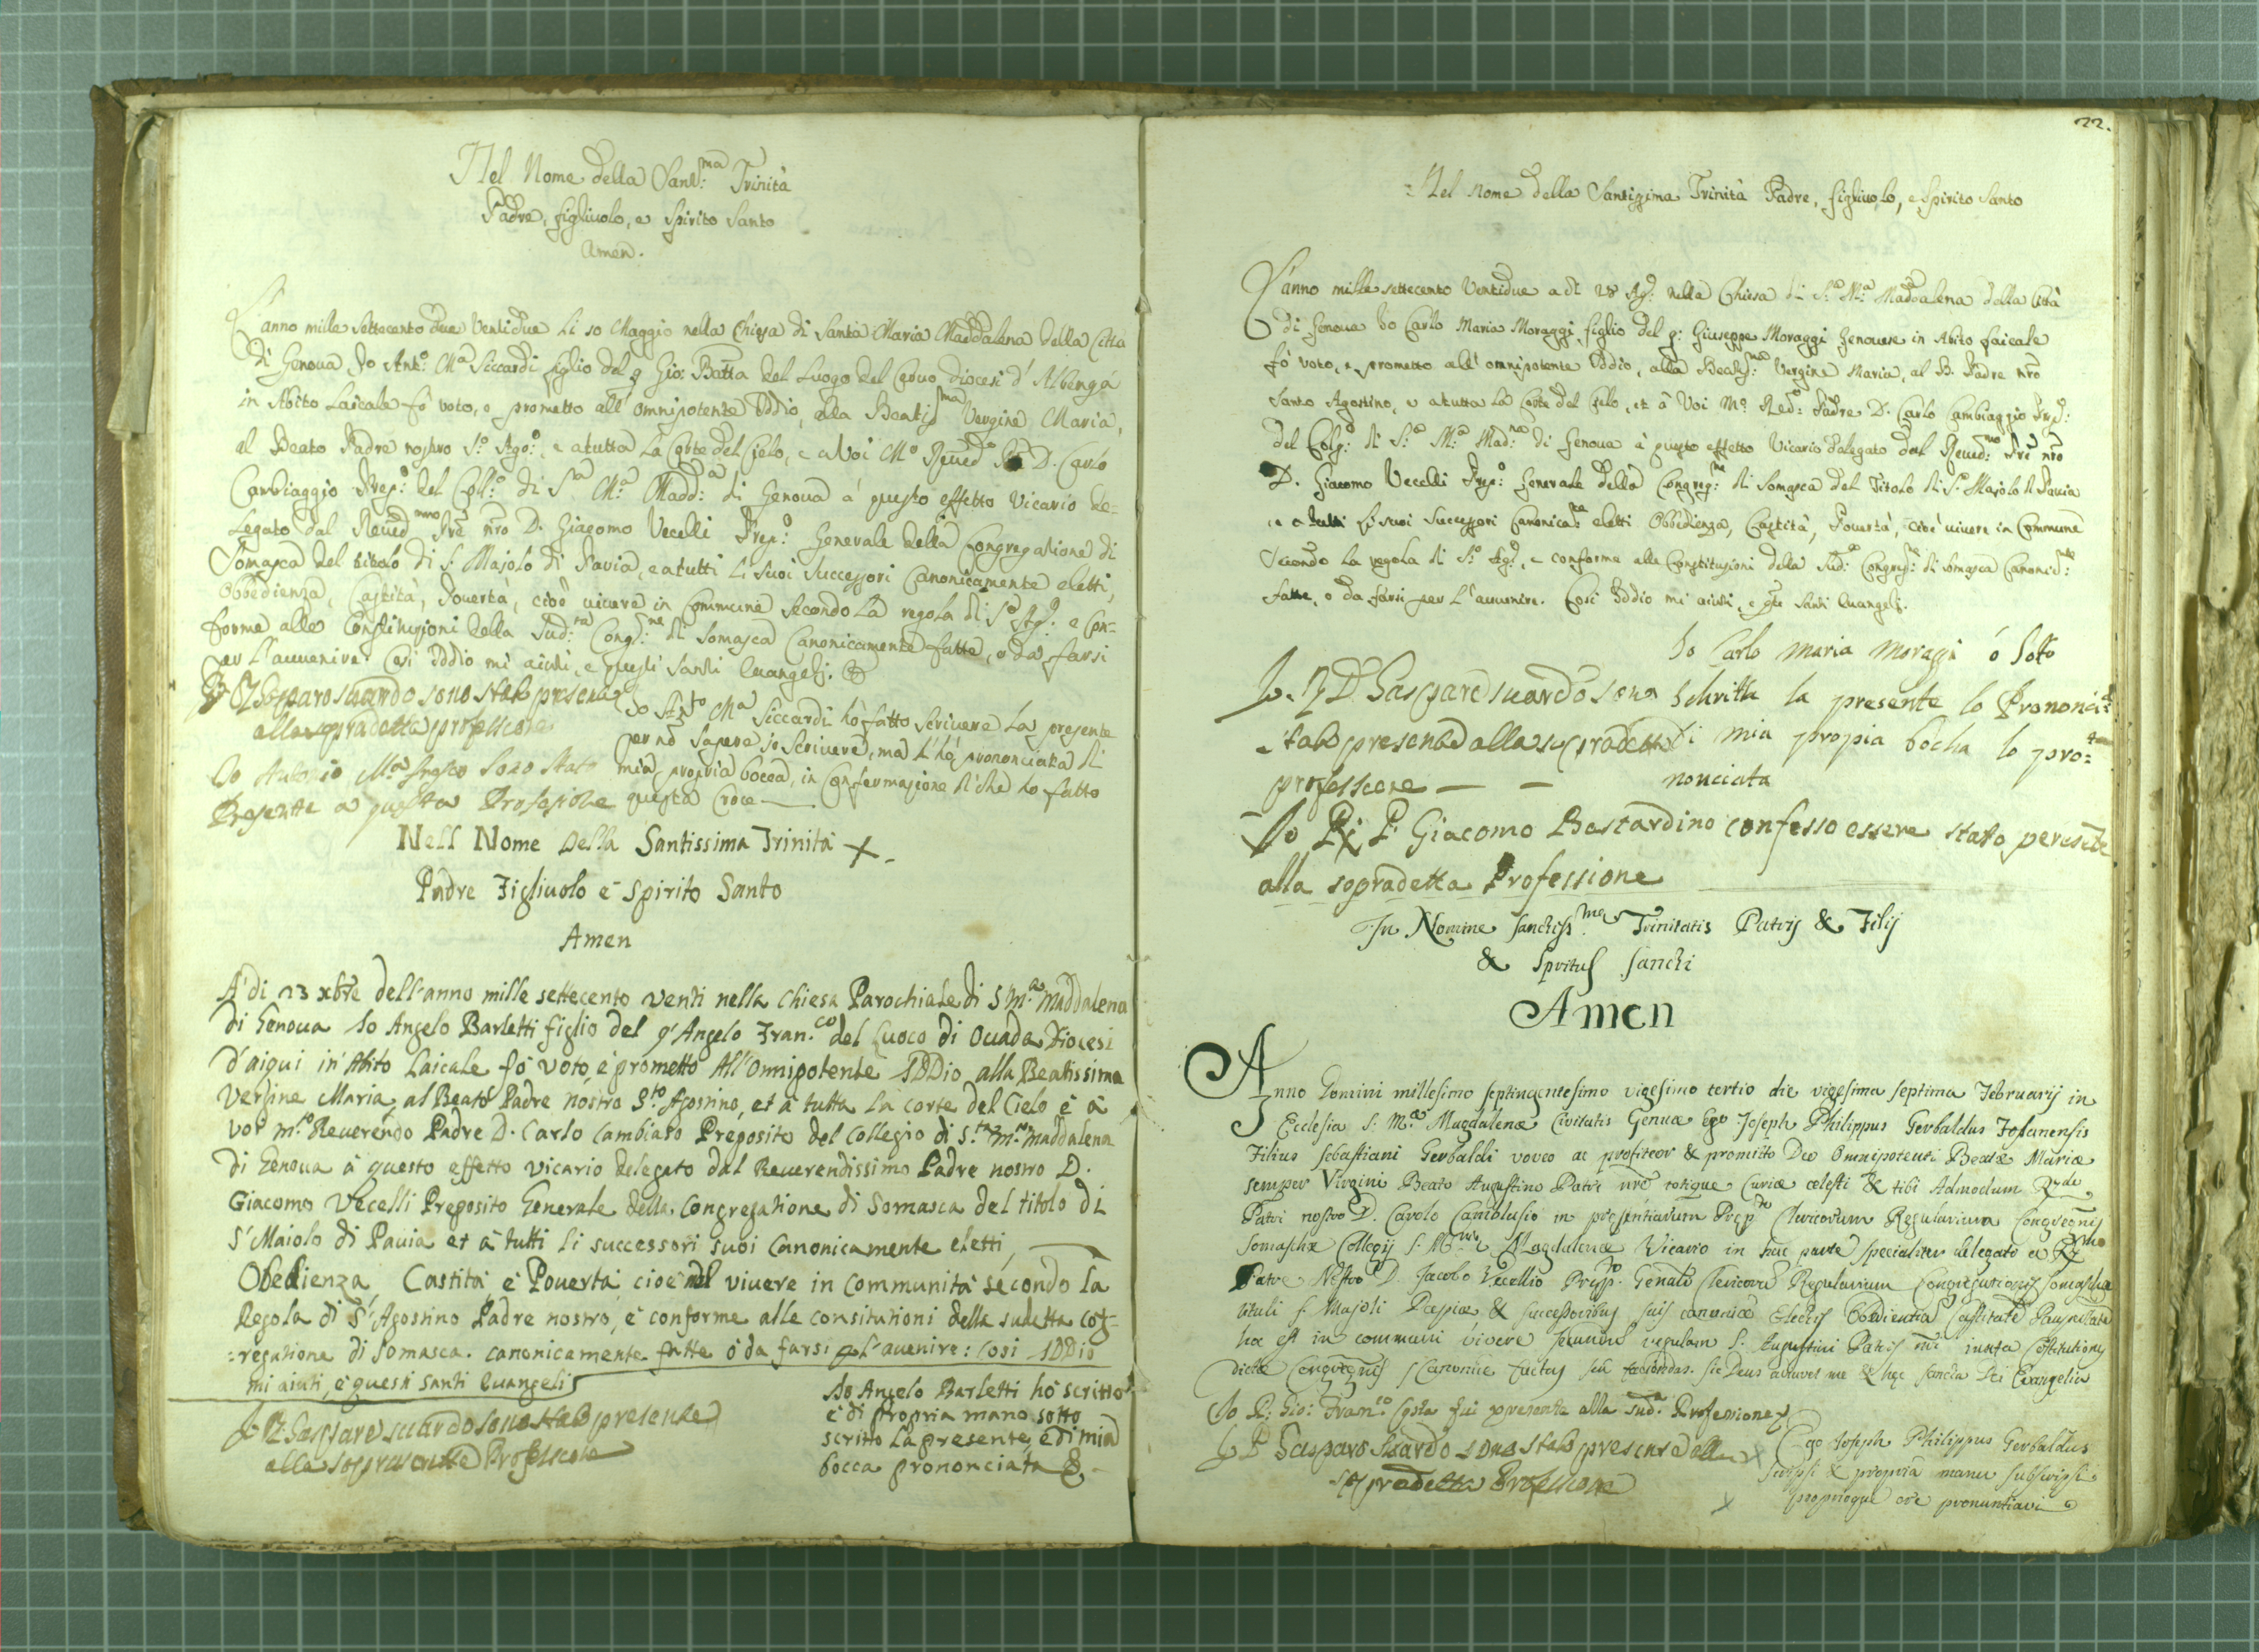 Nel Nome della Sant:ma Trinità
Padre, figliuolo, e Spirito Santo
Amen.
L'anno mille settecento due Ventidue li 10 Maggio nella Chiesa di Santa Maria Maddalena della Città
di Genova Io Ant:o M:a Siccardi figlio del q Gio: Batta del Luogo del Ceruo Diocesi d'Albenga
in Abito Laicale fò voto, e prometto all'omnipotente Iddio, alla Beatis:ma Vergine Maria,
al Beato Padre nostro S:o Ago:o, e a tutta la Corte del Cielo, e a Voi M:o Reued:o D. Carlo
Cambiaggio Prep:o del Coll:o di S:a M:a Madd:a di Genova à questo effetto Vicario de=
legato dal Reued:mo Pre nro D. Giacomo Vecelli Prep:o Generale della Congregatione di
Somasca del titolo di S. Majolo di Pavia, e a tutti li suoi Successori Canonicamente eletti,
Obbedienza, Castità, Pouertà, cioè viuere in Commune secondo la regola di S:o Ag:o e con=
forme alle Constitutioni della Sud:ta Cong:ne di Somasca Canonicamente fatte, o da farsi
per l'auuenire. Così Iddio mi aiuti, e questi Santi Euangelj. &
Gasparo suardo sono stato presente
alla sopradetta professione
Io Ant:o M:a Siccardi hò fatto scriuere la presente
per nõ sapere io scriuere, ma l'hò prononciata di
mia propria bocca, in Confermazione di che ho fatto
questa Croce
Io Antonio M:a sono stato
Presente a questa Profesione
Nell Nome della Santissima Trinità +
Padre Figliuolo è Spirito Santo
Amen
A di 23 xbre dell'anno mille settecento venti nella chiesa Parochiale di S M:a Maddalena
di Genoua Io Angelo Barletti figlio del q' Angelo Fran.co del Luoco di Ouada Diocesi
d'aiqui in Abito Laicale fò voto, e prometto All'Omnipotente IDDio alla Beatissima
Vergine Maria, al Beato Padre nostro S:to Agostino, et à tutta la corte del Cielo è à
voi m:o Reuerendo Padre D. Carlo Cambiaso Preposito del Collegio di S:ta M:a Maddalena
di Genoua à questo effetto vicario delegato dal Reuerendissimo Padre nostro D.
Giacomo Vecelli Preposito Generale della Congregatione di Somasca del titolo di
S' Maiolo di Pauia et à tutti li successori suoi Canonicamente eletti,
Obedienza Castità è Pouertà cioè viuere in Communità secondo la
Regola di S' Agostino Padre nostro, è conforme alle constitutioni della sudetta cog-
=regatione di Somasca canonicamente fatte ò da farsi p l'auenire: Così IDDio
mi aiuti, è questi Santi Euangelij
Gasparo suardo sono stato presente
alla sopra Professione
Io Angelo Barletti hò scritto
è di propria mano sotto
scritto la presente, è di mia
bocca prononciata &
22.
Nel nome della Santissima Trinità Padre, figliuolo, e Spirito Santo
L'anno mille settecento Ventidue a di 28 Ag:o nella Chiesa di S:a M:a Maddalena della Città
di Genoua Io Carlo Maria Moraggi figlio del q: Giuseppe Moraggi Genouese in Abito Laicale
fò voto, e prometto all'omnipotente Iddio, alla Beatis:ma Vergine Maria, al B. Padre nrõ
Santo Agostino, e a tutta la Corte del Cielo, et à Voi M:o Red:o Padre D. Carlo Cambiaggio Prep:
del Colg:o di S:a M:a Mad:na di Genoua à questo effetto Vicario delegato dal Reued:mo Pre nro
D. Giacomo Vecelli Prep:o Generale della Congreg:ne di Somasca del Titolo di S. Majolo di Pauia
e a tutti li suoi Successori Canonica:te eletti Obbedienza, Castità, Pouertà, cioè viuere in Commune
Secondo la regola di S:o Ag:o, e conforme alle Constitutioni della Sud:a Congreg:ne di Somasca Canonic:te
fatte, o da farsi per l'auuenire. Così Iddio mi aiuti, e qti Santi Euangelj.
Io Carlo Maria Moraggi ó Sotto
Schritta la presente lo Prononciata
di mia propia bocha lo pro=
nonciata
D. Gaspare suardo sono
stato presente alla sopradetta
professione
Io P. Giacomo Bastardino confesso essere stato
alla sopradetta Professione
In Nomine sanctiss:mæ Trinitatis Patris & Filij
& Spritus Sancti
Amen
Anno Domini millesimo septingentesimo vigesimo tertio die vigesima septima Februarij in
Ecclesia S. M:æ Magdalenæ Civitatis Genuæ Ego Joseph Philippus Gerbaldus Fosanensis
Filius Sebastiani Gerbaldi voveo ac profiteor & promitto Deo Omnipotenti Beatæ Mariæ
semper Virgini Beato Augustino Patri nrõ totique Curiæ cælesti & tibi Admodum Rdo
Patri nostro D. Carolo Cambiasio in præsentiarum Præp:to Clericorum Regularium Congregnis
Somaschæ Collegij S. M Magdalenæ Vicario in hac parte specialiter delegato a Rmo
Patre Nostro D. Jacobo Vecellio Præp:to Genali Clericorũ Regularium Congregationis Somaschæ
tituli S. Majoli Papiæ & successoribus suis canonicè Electis Obedientiã Castitatẽ Paupertatẽ
hoc est in communi vivere secundũ regulam S. Augustini Patris nri iuxta Costitutiones
dictæ Congregnis Canonicè factas seu faciendas. Sic Deus adiuvet me & hæc sancta Dei Evangelia
Io P. Gio: Fran:co Costa fui presente alla sud:a Professione
Gasparo Suardo sono stato presente alla
sopradetta Professione
Ego Joseph Philippus Gerbaldus
scripsi & propria manu subscripsi
proprioque ore pronuntiavi